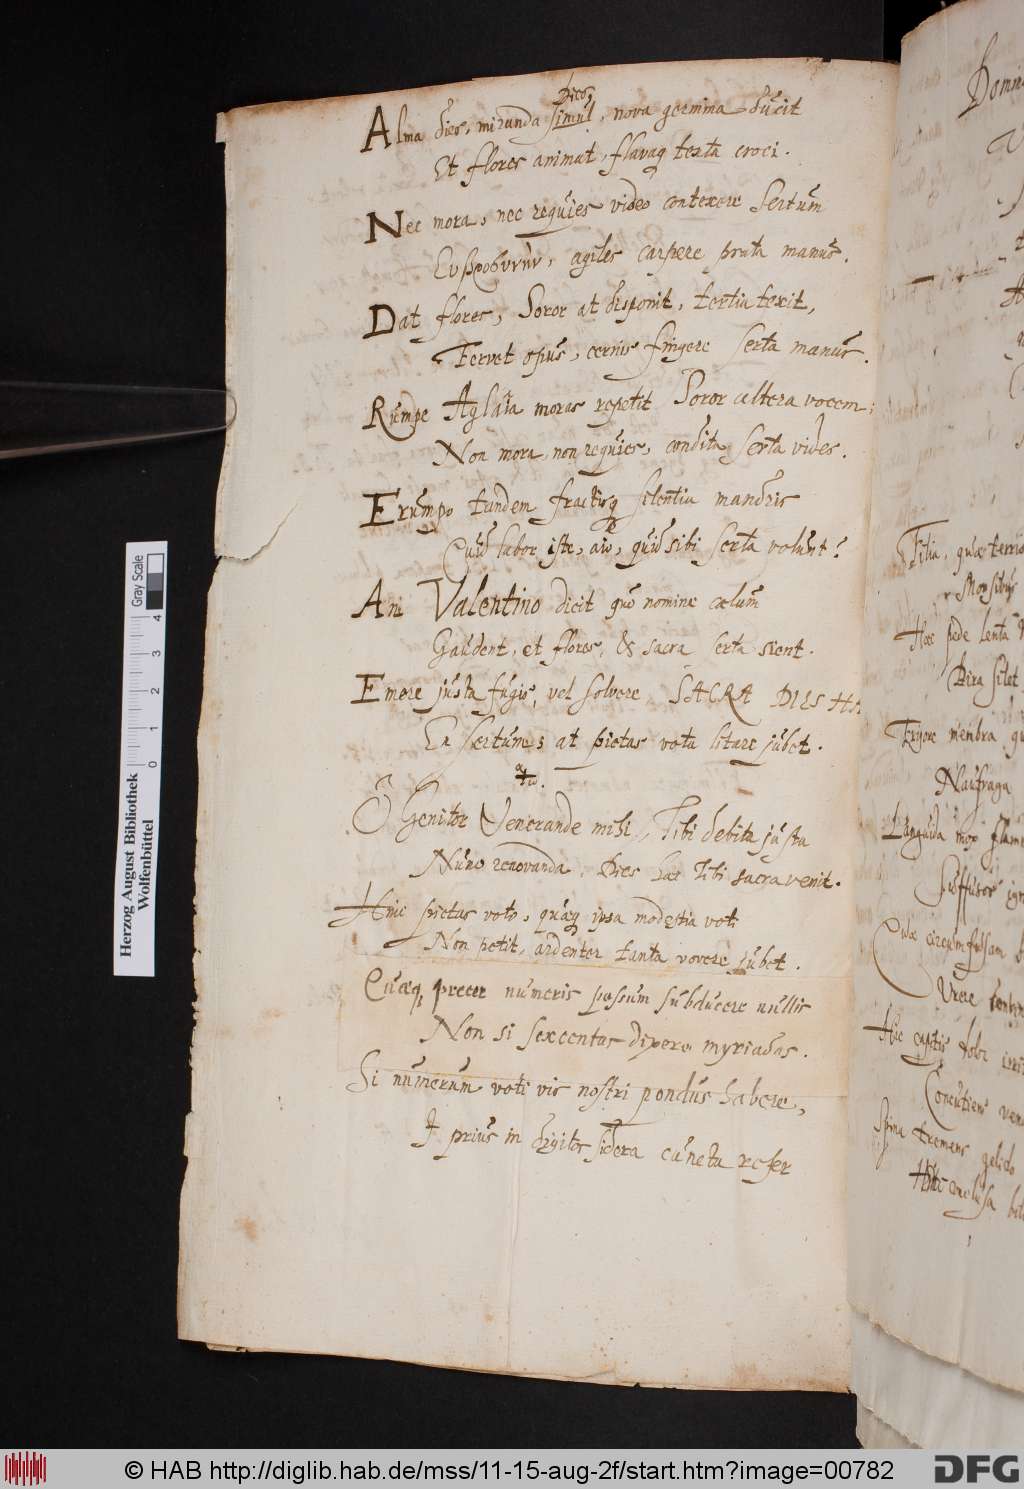 Dies,
Alma dies, miranda simul, nova gemma ducit
Et flores animat, flavaq texta croci.
Nec mora, nec requies video contexere Sertum
agiles carpere prata manus.
Dat flores, Soror at disponit, tertia texit,
Fervet opus, cernis fingere serta manus.
Rumpe Aglaia moras repetit Soror altera vocem:
Non mora, non requies, condita serta vides.
Erumpo tandem fractisq silentia mandris
Quid labor iste, aio, quid sibi serta volunt?
An Valentino dicit quo nomine cælum
Gaudent, et flores, & sacra serta sient.
Emere justa fugis, vel solvere SACRA DIES
Ex sertum; at pietas vota litare jubet.
O Genitor Venerande mihi, Tibi debita justa
Nunc renovanda, Dies hæc Tibi sacra venit.
Hinc pietas voto, quæq ipsa modestia voti
Non petit, ardenter tanta vovere jubet.
Quæq, precer numeris passum subducere nullis
Non si sexcentas dixero myriadas.
Si numerum voti vis nostri pondus habere,
I prius in digitos sidera cuncta refer
Domin
Filia, quæ terrio
Mors
Hæc pede lenta
Dira silet
membra
Naufraga
Languida mox flam
Suffusos ign
Quæ circumfusam
Urere
Hic capitis
Concutiens
Spina tremens gelido
Gray Scale
0 1 2 3 4
Herzog August Bibliothek
Wolfenbüttel
© HAB http://diglib.hab.de/mss/11-15-aug-2f/start.htm?image=00782
DFG